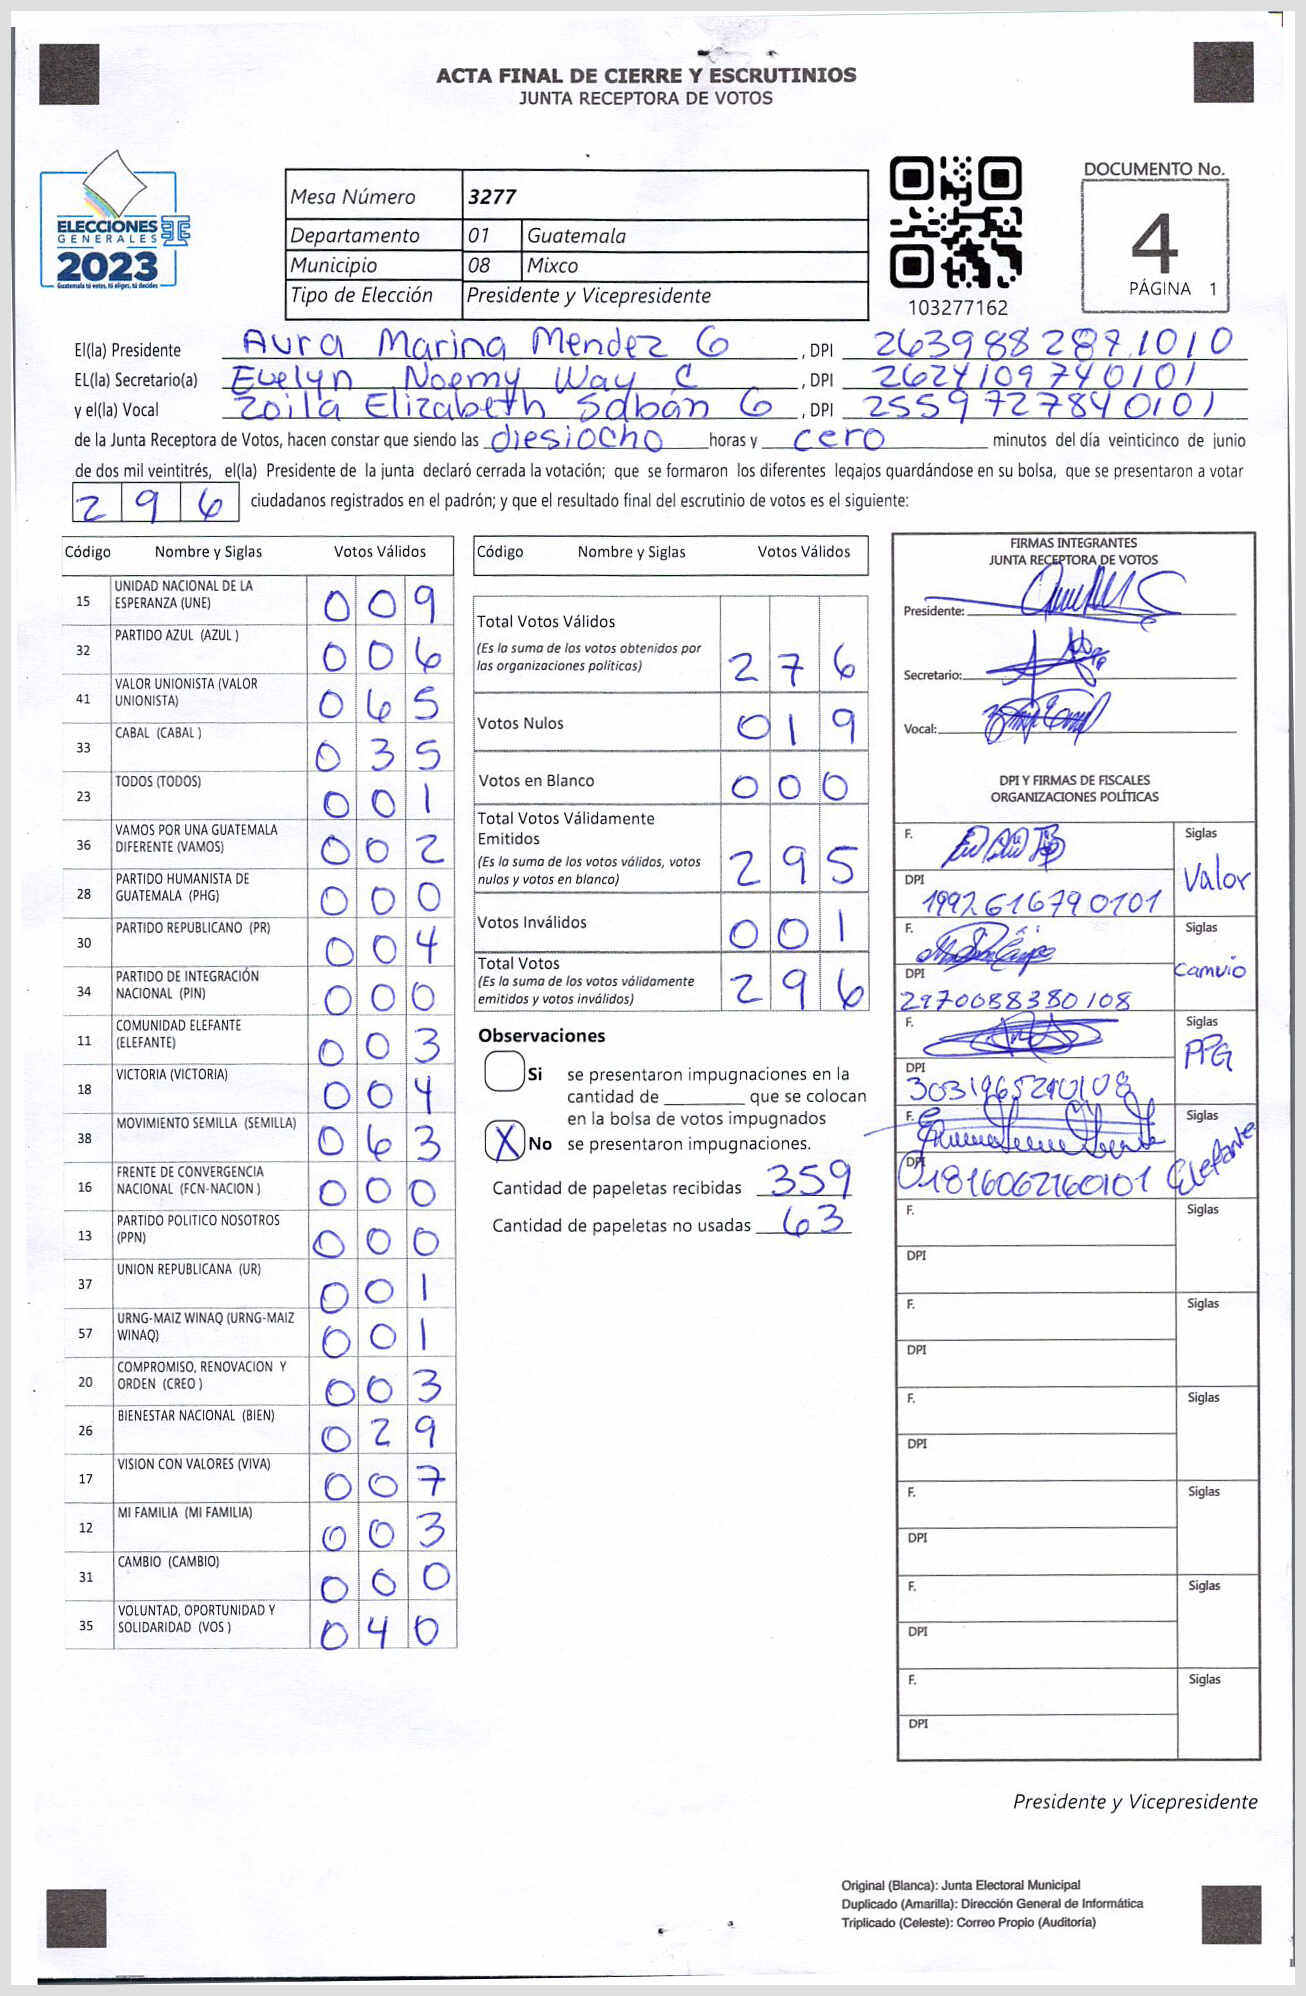 ACTA FINAL DE CIERRE Y ESCRUTINIOS
JUNTA RECEPTORA DE VOTOS
ELECCIONES
GENERALES
2023
Guatemala tú votas, tú eliges, tú decides
Mesa Número 3277
Departamento 01 Guatemala
Municipio 08 Mixco
Tipo de Elección Presidente y Vicepresidente
103277162
DOCUMENTO No.
4
PÁGINA 1
El(la) Presidente Aura Marina Mendez G , DPI 2639882871010
EL(la) Secretario(a) Evelyn Noemy Way C , DPI 2624109740101
y el(la) Vocal Zoila Elizabeth Sabán G , DPI 2559727840101
de la Junta Receptora de Votos, hacen constar que siendo las diesiocho horas y cero minutos del día veinticinco de junio
de dos mil veintitrés, el(la) Presidente de la junta declaró cerrada la votación; que se formaron los diferentes legajos guardándose en su bolsa, que se presentaron a votar
296 ciudadanos registrados en el padrón; y que el resultado final del escrutinio de votos es el siguiente:
Código Nombre y Siglas Votos Válidos
15 UNIDAD NACIONAL DE LA ESPERANZA (UNE) 009
32 PARTIDO AZUL (AZUL ) 006
41 VALOR UNIONISTA (VALOR UNIONISTA) 065
33 CABAL (CABAL ) 035
23 TODOS (TODOS) 001
36 VAMOS POR UNA GUATEMALA DIFERENTE (VAMOS) 002
28 PARTIDO HUMANISTA DE GUATEMALA (PHG) 000
30 PARTIDO REPUBLICANO (PR) 004
34 PARTIDO DE INTEGRACIÓN NACIONAL (PIN) 000
11 COMUNIDAD ELEFANTE (ELEFANTE) 003
18 VICTORIA (VICTORIA) 004
38 MOVIMIENTO SEMILLA (SEMILLA) 063
16 FRENTE DE CONVERGENCIA NACIONAL (FCN-NACION ) 000
13 PARTIDO POLITICO NOSOTROS (PPN) 000
37 UNION REPUBLICANA (UR) 001
57 URNG-MAIZ WINAQ (URNG-MAIZ WINAQ) 001
20 COMPROMISO, RENOVACION Y ORDEN (CREO ) 003
26 BIENESTAR NACIONAL (BIEN) 029
17 VISION CON VALORES (VIVA) 007
12 MI FAMILIA (MI FAMILIA) 003
31 CAMBIO (CAMBIO) 000
35 VOLUNTAD, OPORTUNIDAD Y SOLIDARIDAD (VOS ) 040
Código Nombre y Siglas Votos Válidos
Total Votos Válidos
(Es la suma de los votos obtenidos por
las organizaciones políticas) 276
Votos Nulos 019
Votos en Blanco 000
Total Votos Válidamente
Emitidos
(Es la suma de los votos válidos, votos
nulos y votos en blanco) 295
Votos Inválidos 001
Total Votos
(Es la suma de los votos válidamente
emitidos y votos inválidos) 296
Observaciones
Si se presentaron impugnaciones en la
cantidad de ________ que se colocan
en la bolsa de votos impugnados
X No se presentaron impugnaciones.
Cantidad de papeletas recibidas 359
Cantidad de papeletas no usadas 63
FIRMAS INTEGRANTES
JUNTA RECEPTORA DE VOTOS
Presidente:
Secretario:
Vocal:
DPI Y FIRMAS DE FISCALES
ORGANIZACIONES POLÍTICAS
F. Siglas
Valor
DPI 1992616790101
F. Siglas
Camvio
DPI 2970088380108
F. Siglas
PPG
DPI
F. Elefante
DPI 01816062160101
F. Siglas
DPI
F. Siglas
DPI
F. Siglas
DPI
F. Siglas
DPI
F. Siglas
DPI
F. Siglas
DPI
Presidente y Vicepresidente
Original (Blanca): Junta Electoral Municipal
Duplicado (Amarilla): Dirección General de Informática
Triplicado (Celeste): Correo Propio (Auditoría)